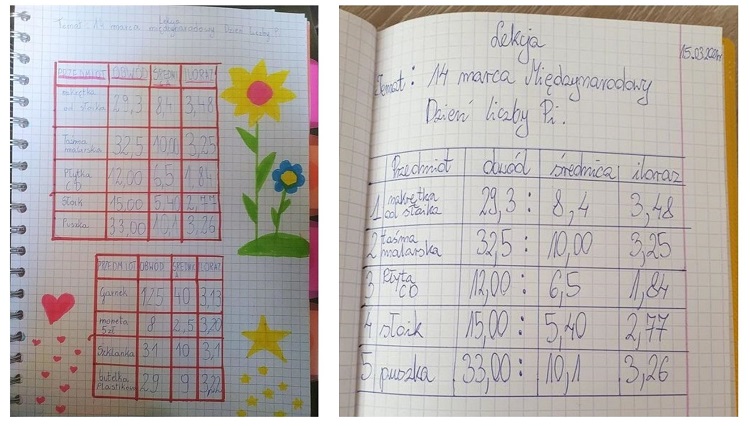 Lekcja
Temat: 14 marca międzynarodowy Dzień liczby
PRZEDMIOT OBWÓD ILORAZ
nakrętka
od słoika 29,3 8,4 3,48
Taśma
malarska 32,5 10,00 3,25
Płytka
CD 12,00 6,5 1.84
Słoik 15.00 5,40 2,77
Puszka 33,00 10,1 3,26
PRZEDMIOT OBWÓD
Garnek 125 40 3,13
moneta
5zł 8 2,5 3,20
Szklanka 31 10 3,1
butelka
Plastikowa 29 9 3,22
Lekcja
Temat: 14 marca Międzynarodowy
Dzień liczby Pi.
Przedmiot obwód średnica iloraz
1 nakrętka
od słoika 29,3 : 8,4 3,48
2 taśma
malarska 32,5 : 10,00 3,25
3 Płyta
CD 12,00 : 6,5 1,84
4 słoik 15,00 : 5,40 2,77
5 puszka 33,00 : 10,1 3,26